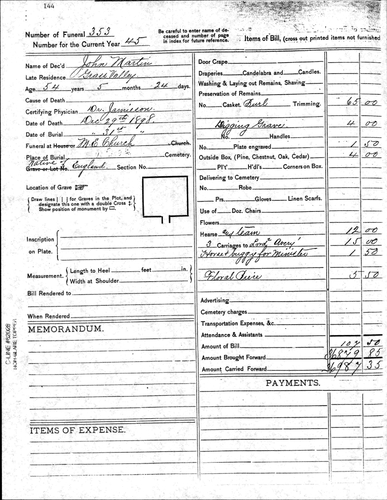 144
Number of Funeral 353
Number for the Current Year 45
Be carefull to enter name of deceased and number of page in index for future reference.
Items of Bill, (cross out printed items not furnished
Name of Dec'd John Martin
Late Residence Grass Valley
Age 54 years 5 months 24 days
Cause of Death
Certifying Physician Dr. Jamieson
Date of Death Dec 29th 1898.
Date of Burial " 31st "
Funeral at House or M.E. Church Church.
Place of Burial Cemetery.
Native of England Section No.
Grave or Lot No.
Location of Grave
Draw lines for Graves in the Plot, and designate this one with a double Cross. Show position of monument by
Inscription on Plate.
Measurement. Length to Heel feet in.
Width at Shoulder
Bill Rendered to
When Rendered
MEMORANDUM.
ITEMS OF EXPENSE.
Door Crape
Draperies Candelabra and Candles.
Washing & Laying out Remains, Shaving
Preservation of Remains
No. Casket Burl Trimming. 65 00
Digging Grave 4 00
No. Handles
No. Plate engraved 1 00
Outside Box (Pine, Chestnut, Oak, Cedar) 4 00
P'lY H'd'l Corners on Box.
Delivering to Cemetery
No. Robe
Prs. Gloves Linen Scarfs.
Use of Doz. Chairs
Flowers
Hearse & team 12 00
3 Carriages to 15 00
Horse & buggy for Minister 1 50
Floral Piece 5 50
Advertising
Cemetery charges
Transportation Expenses, &c
Attendance & Assistants
Amount of Bill 107 50
Amount Brought Forward 6879 85
Amount Carried Forward 6987 35
PAYMENTS.